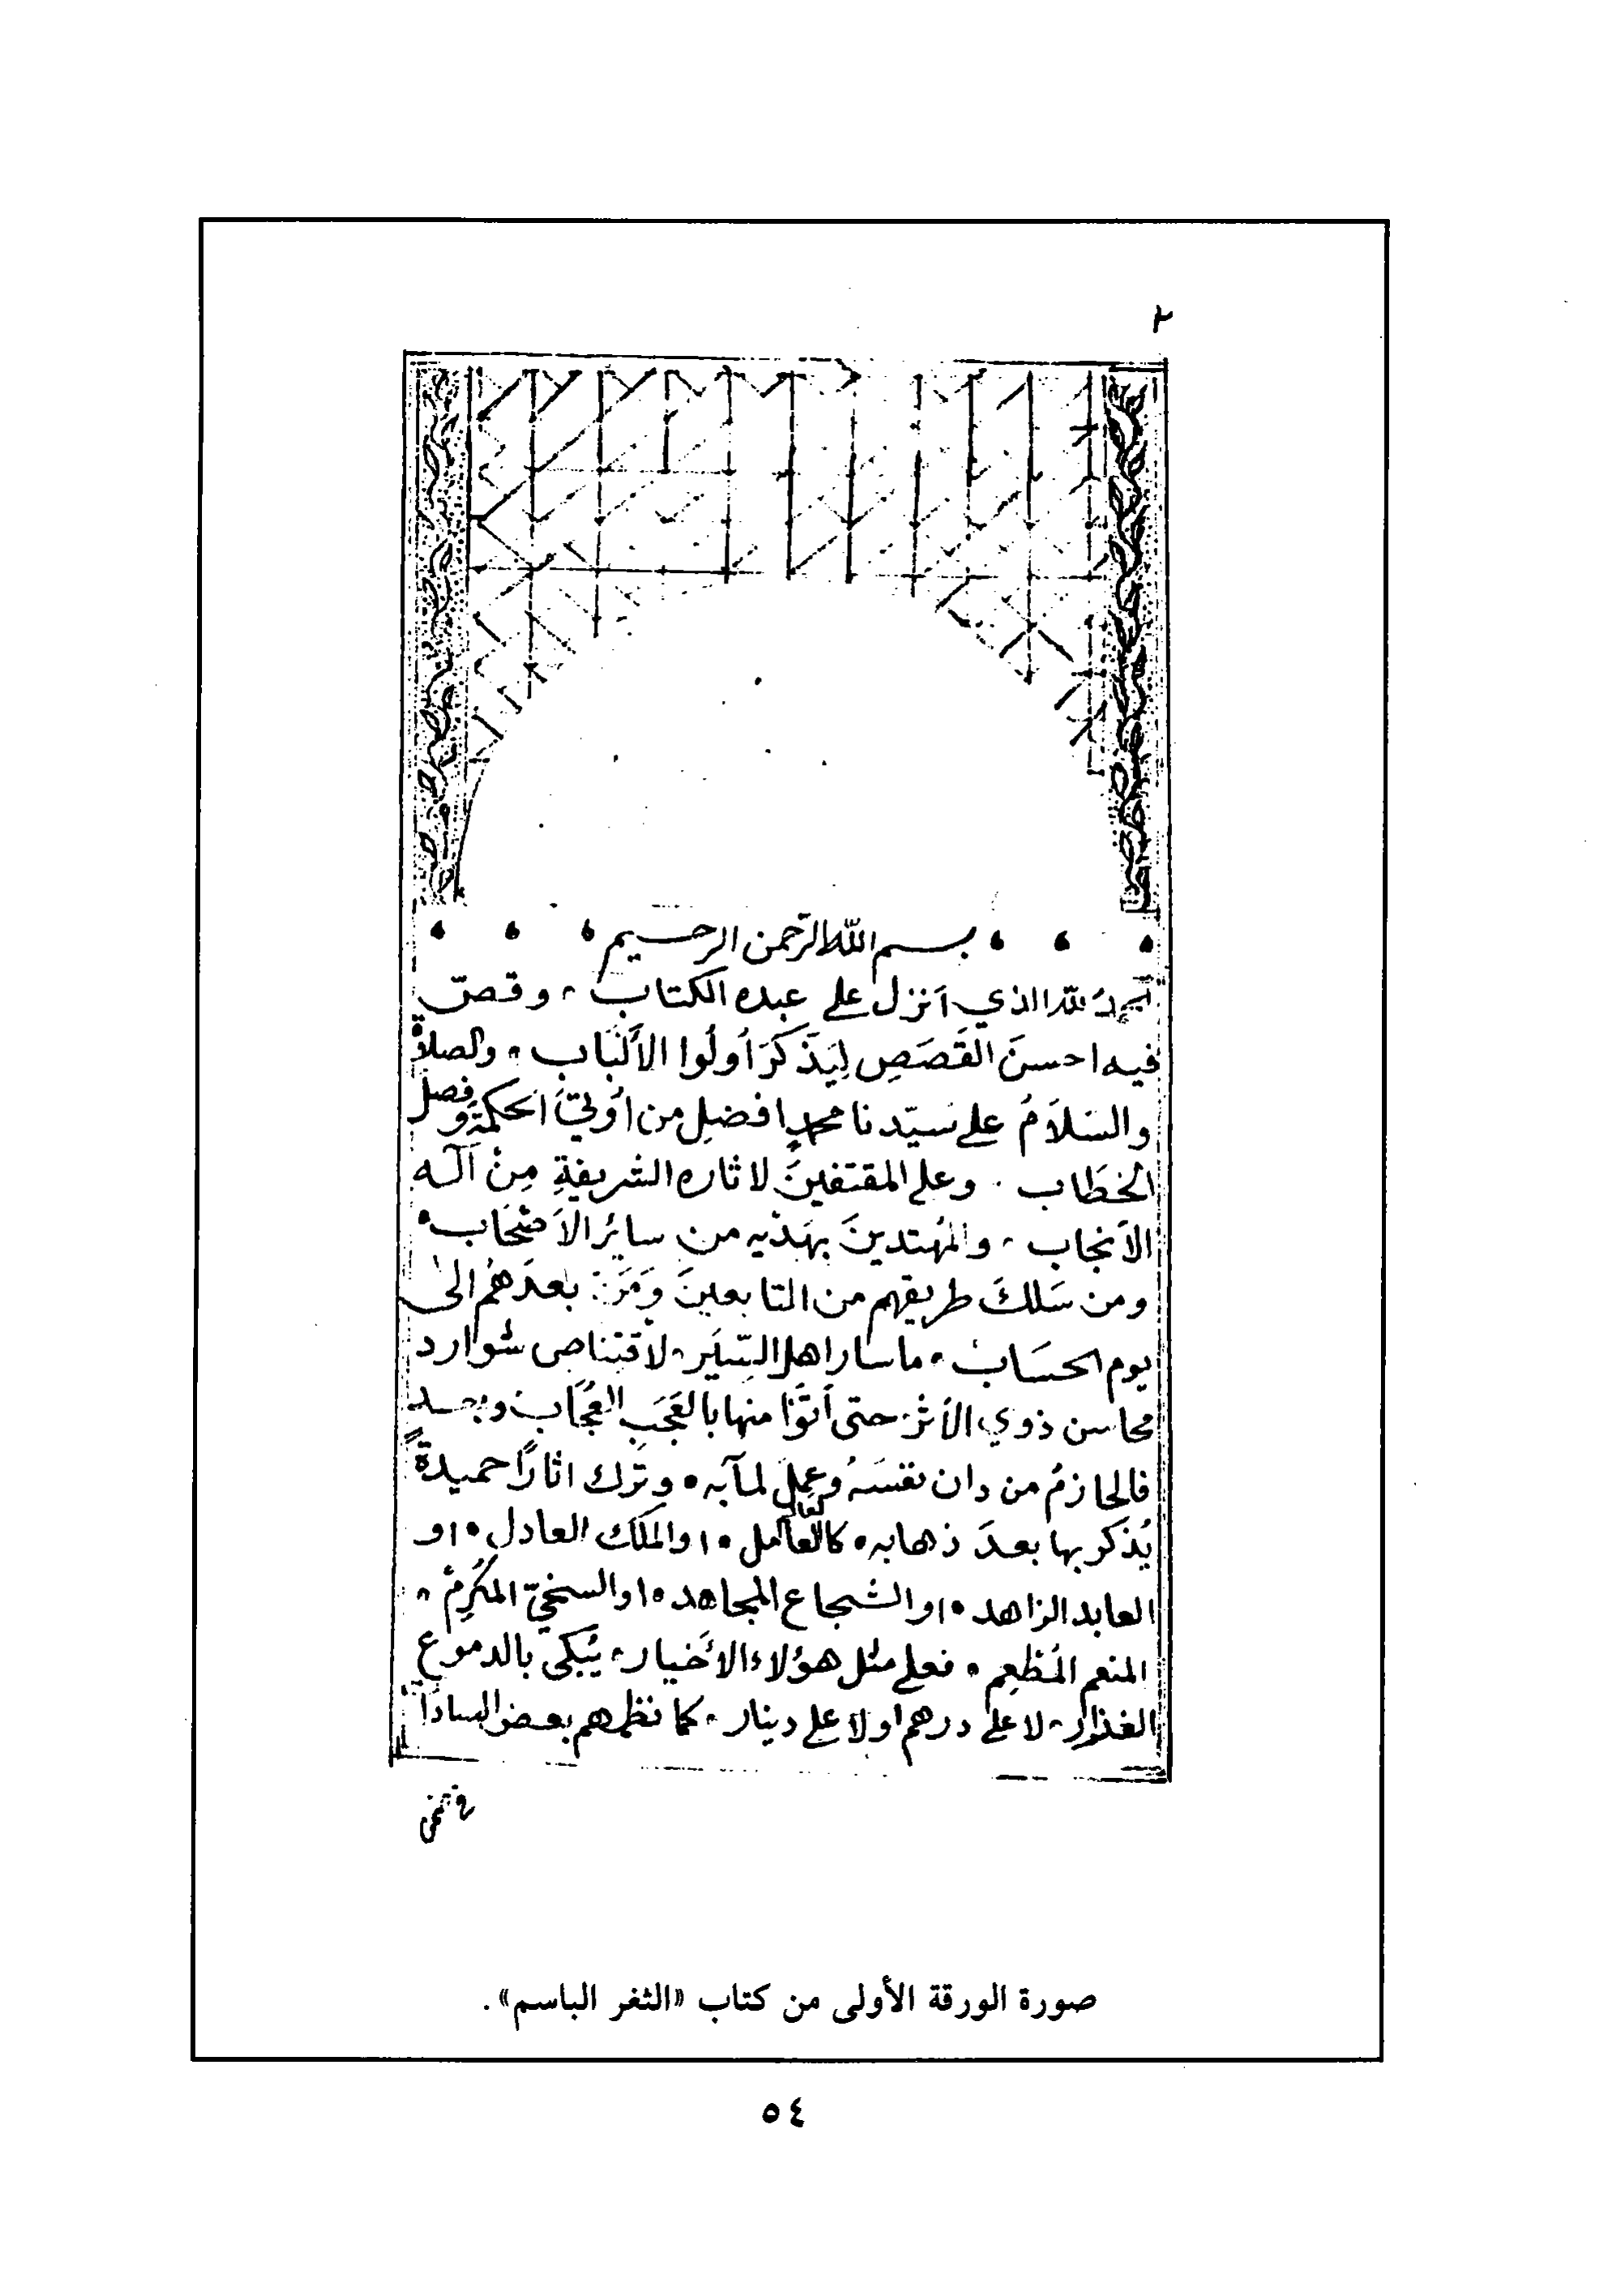 ٢
بسم الله الرحمن الرحيم
الحمدُ لله الذي أنزل على عبده الكتاب، وقصّ
فيه احسنَ القَصَصِ لِيَذَّكَرَ اُولُوا الأَلْبَاب، والصلاةُ
والسَلاَمُ على سَيّدنا محمدٍ افضلِ من اُوتيَ الحكمَةَ وفصل
الخطَاب . وعلى المقتفينَ لاثاره الشريفةِ مِنْ آله
الأنجاب، والمُهتدينَ بهَدْيه من سائر الأَصْحَاب،
ومن سَلكَ طريقهم من التابعينَ وَمَنْ بعدَهُم الىٰ
يوم الحسَاب، ماسار اهل السِّيَر، لاقتناص شوارد
محاسن ذوي الأثر حتى أتَوْا منها بالعَجَب العُجَاب وبعـد
فالحازمُ من دان نفسَهُ وعمِلَ لمآبه، وترك اثارًا حميدةً
يُذكر بها بعدَ ذهابه، كالعالم العامل، اوالملك العادل، او
العابد الزاهد، اوالشجاع المجاهد، اوالسخيّ المكرِمْ،
المنعم المُطْعِم، فعلى مثل هؤلاء الأخيار، يُبْكى بالدموع
الغزار، لا على درهم اولا على دينار، كما نظمهم بعض السادا
صورة الورقة الأولى من كتاب «الثغر الباسم».
٥٤